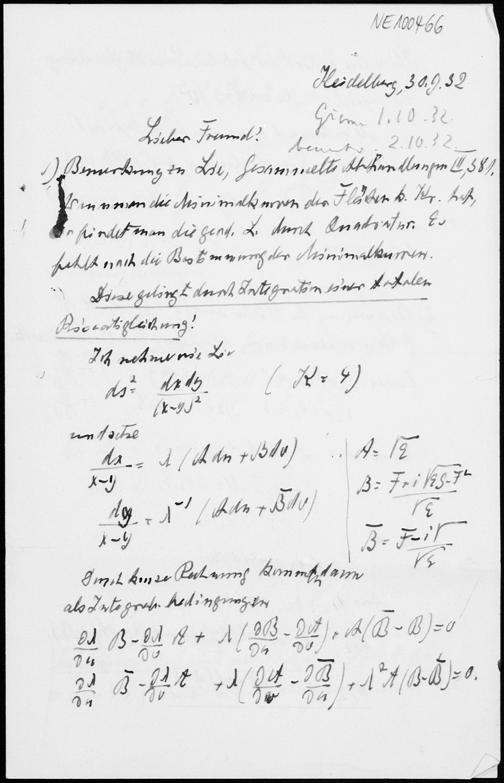 NE100466
Heidelberg, 30.9.32
1.10.32.
2.10.32.
Lieber Freund!
1) Bemerkung zu Lie, Gesammelte Abhandlungen III, 381.
man die Minimalkurven der Flächen k. Kr. hat,
so findet man die geod. L. durch Quadratur. Es
fehlt noch die Bestimmung der Minimalkurven.
Diese gelingt durch Integration einer totalen
Riccatigleichung!
Ich nehme wie Lie
ds² = dx dy / (x-y)² (K = 4)
und setze
dx/(x-y) = λ (A du + B dv) A = √E
dy/(x-y) = λ⁻¹ (A du + B̄ dv) B = (F + i√(EG-F²))/√E
B̄ = (F - i√)/√E
Durch kurze Rechnung kommt dann
als Integrab. bedingungen
∂λ/∂u B - ∂λ/∂v A + λ (∂B/∂u - ∂A/∂v) + A (B̄ - B) = 0
∂λ/∂u B̄ - ∂λ/∂v A + λ (∂A/∂v - ∂B̄/∂u) + λ² A (B - B̄) = 0.